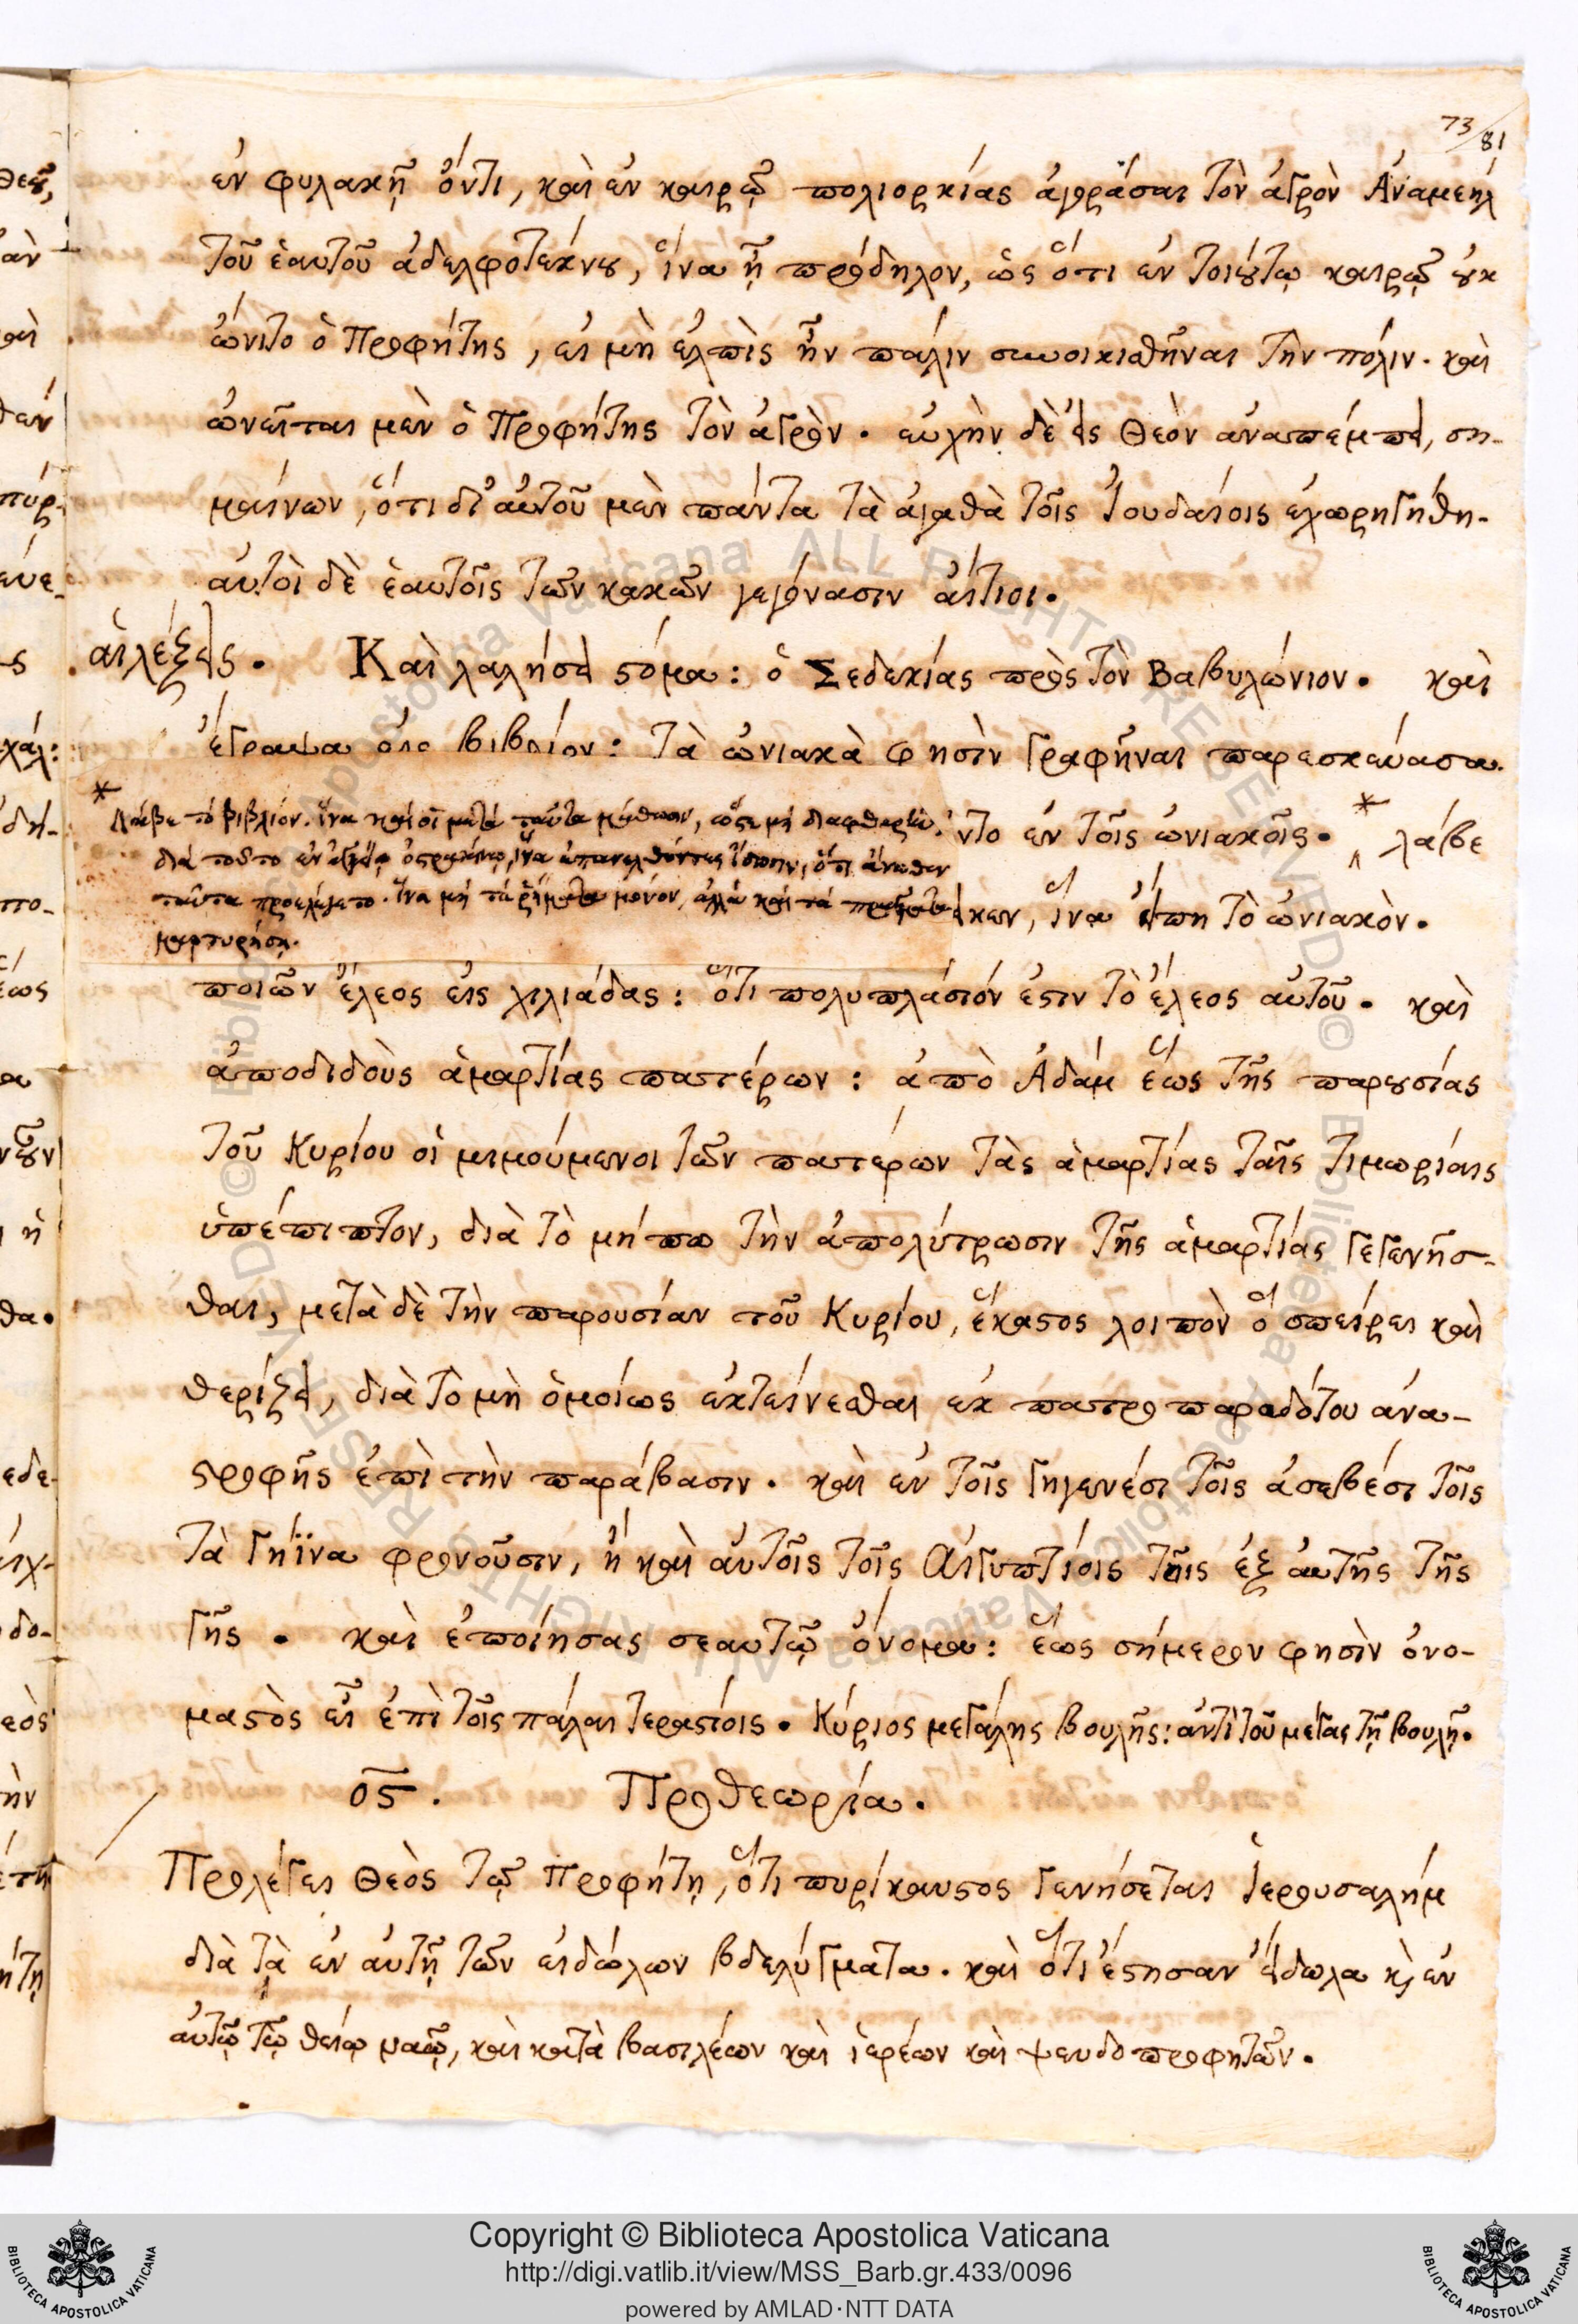 73/81
ἐν φυλακῇ ὄντι, καὶ ἐν καιρῷ πολιορκίας ἀγοράσαι τὸν ἀγρὸν Ἀναμεὴλ
τοῦ ἑαυτοῦ ἀδελφοτέκνου, ἵνα ᾖ πρόδηλον, ὡς ὅτι ἐν τοιούτῳ καιρῷ οὐκ
ὠνῖτο ὁ Προφήτης, εἰ μὴ ἐλπὶς ἦν πάλιν συνοικισθῆναι τὴν πόλιν. καὶ
ὠνεῖται μὲν ὁ Προφήτης τὸν ἀγρὸν. εὐχὴν δὲ εἰς Θεὸν ἀναπέμπει, ση-
μαίνων, ὅτι δι' αὐτοῦ μὲν πάντα τὰ ἀγαθὰ τοῖς Ἰουδαίοις ἐχωρηγήθη.
αὐτοὶ δὲ ἑαυτοῖς τῶν κακῶν γεγόνασιν αἴτιοι.
αἱ λέξεις. Καὶ λαλήσει στόμα: ὁ Σεδεκίας πρὸς τὸν Βαβυλώνιον. καὶ
ἔγραψα εἰς βιβλίον: τὰ ὠνιακὰ φησὶν γραφῆναι παρεσκεύασα.
* Λάβε τὸ βιβλίον. ἵνα καὶ οἱ μετὰ ταῦτα μάθωσιν, ὥστε μὴ διαφθαρῇ.
διὰ τοῦτο ἐν ἀγγείῳ ὀστρακίνῳ, ἵνα ἐπανελθόντες ἴδωσιν, ὅτι ἄνωθεν
ταῦτα προελέγετο. ἵνα μὴ τὰ ῥήματα μόνον, ἀλλὰ καὶ τὰ πράγματα
μαρτυρήσῃ.
ντο ἐν τοῖς ὠνιακοῖς. * λάβε
κεν, ἵνα εἴπη τὸ ὠνιακὸν.
ποιῶν ἔλεος εἰς χιλιάδας: ὅτι πολυπλάσιόν ἐστιν τὸ ἔλεος αὐτοῦ. καὶ
ἀποδιδοὺς ἁμαρτίας πατέρων: ἀπὸ Ἀδὰμ ἕως τῆς παρουσίας
τοῦ Κυρίου οἱ μιμούμενοι τῶν πατέρων τὰς ἁμαρτίας ταῖς τιμωρίαις
ὑπέπιπτον, διὰ τὸ μήπω τὴν ἀπολύτρωσιν τῆς ἁμαρτίας γεγενῆσ-
θαι, μετὰ δὲ τὴν παρουσίαν τοῦ Κυρίου, ἕκαστος λοιπὸν ὃ σπείρει καὶ
θερίζει, διὰ τὸ μὴ ὁμοίως ἐκτείνεσθαι ἐκ πατροπαραδότου ἀνα-
στροφῆς ἐπὶ τὴν παράβασιν. καὶ ἐν τοῖς γηγενέσι τοῖς ἀσεβέσι τοῖς
τὰ γήϊνα φρονοῦσιν, ἢ καὶ αὐτοῖς τοῖς Αἰγυπτίοις τοῖς ἐξ αὐτῆς τῆς
γῆς. καὶ ἐποίησας σεαυτῷ ὄνομα: ἕως σήμερον φησὶν ὀνο-
μαστὸς εἶ ἐπὶ τοῖς πάλαι τεραστίοις. Κύριος μεγάλης βουλῆς: ἀντὶ τοῦ μέγας τῇ βουλῇ.
ος. Προθεωρία.
Προλέγει Θεὸς τῷ Προφήτῃ, ὅτι πυρίκαυστος γενήσεται Ἱερουσαλήμ
διὰ τὰ ἐν αὐτῇ τῶν εἰδώλων βδελύγματα. καὶ ὅτι ἔστησαν εἴδωλα κὶ ἐν
αὐτῷ τῷ θείῳ ναῷ, καὶ κατὰ βασιλέων καὶ ἱερέων καὶ ψευδοπροφητῶν.
Copyright © Biblioteca Apostolica Vaticana
http://digi.vatlib.it/view/MSS_Barb.gr.433/0096
powered by AMLAD·NTT DATA